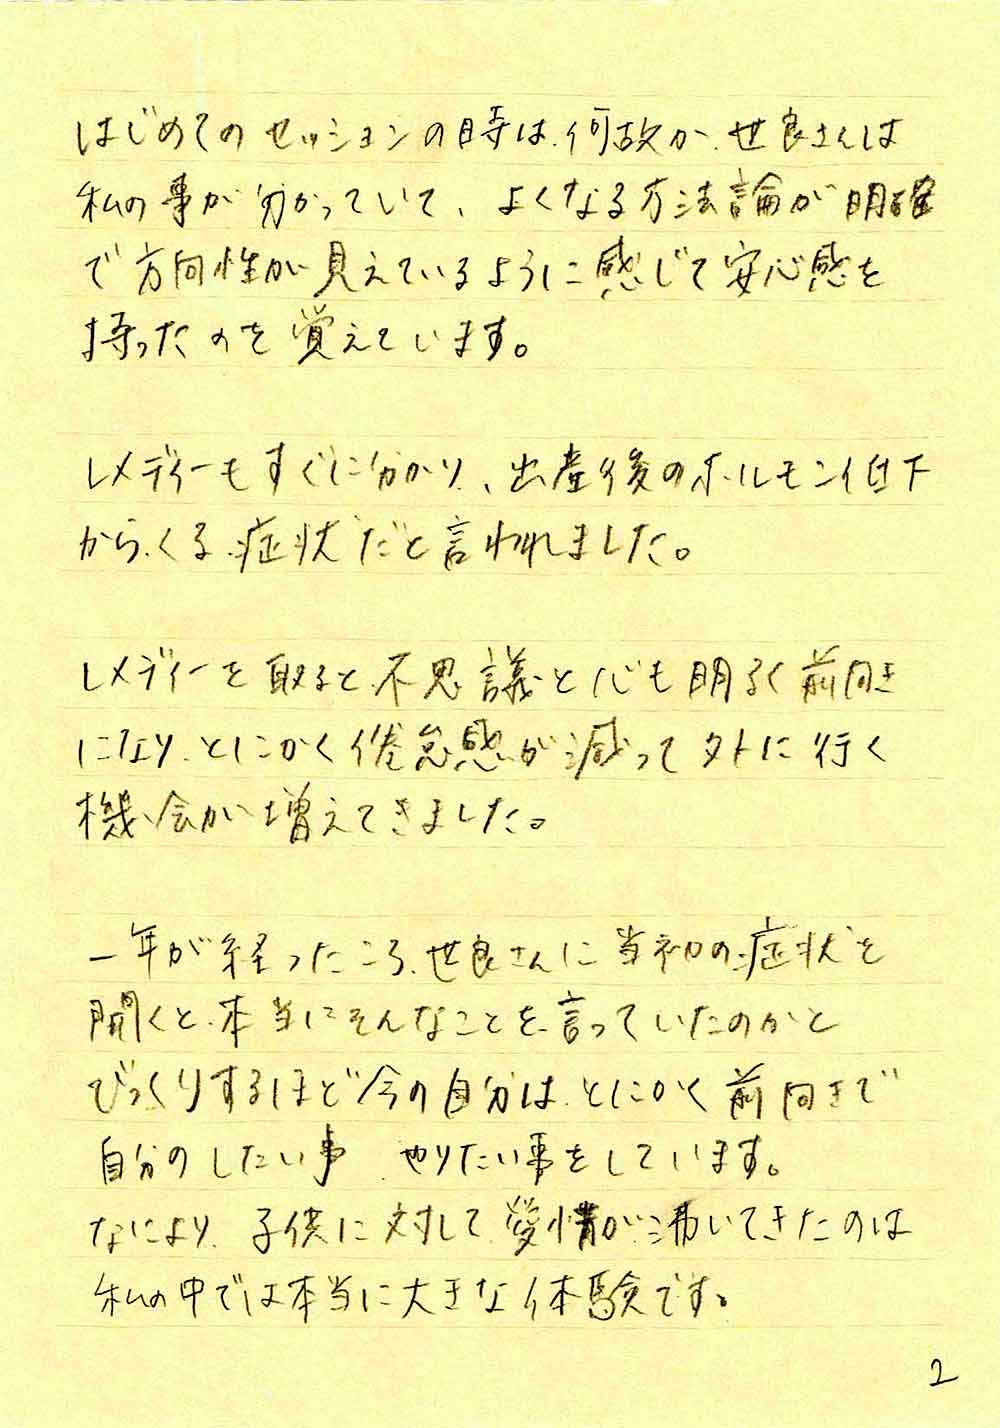 はじめてのセッションの時は、何故か、世良さんは
私の事が分かっていて、よくなる方法論が明確
で方向性が見えているように感じて安心感を
持ったのを覚えています。
レメディーもすぐに分かり、出産後のホルモン低下
からくる症状だと言われました。
レメディーを取ると、不思議と心も明るく前向き
になり、とにかく倦怠感が減って外に行く
機会が増えてきました。
一年が経ったころ、世良さんに当初の症状を
聞くと、本当にそんなことを言っていたのかと
びっくりするほど今の自分は、とにかく前向きで
自分のしたい事、やりたい事をしています。
なにより、子供に対して愛情が沸いてきたのは
私の中では本当に大きな体験です。
2